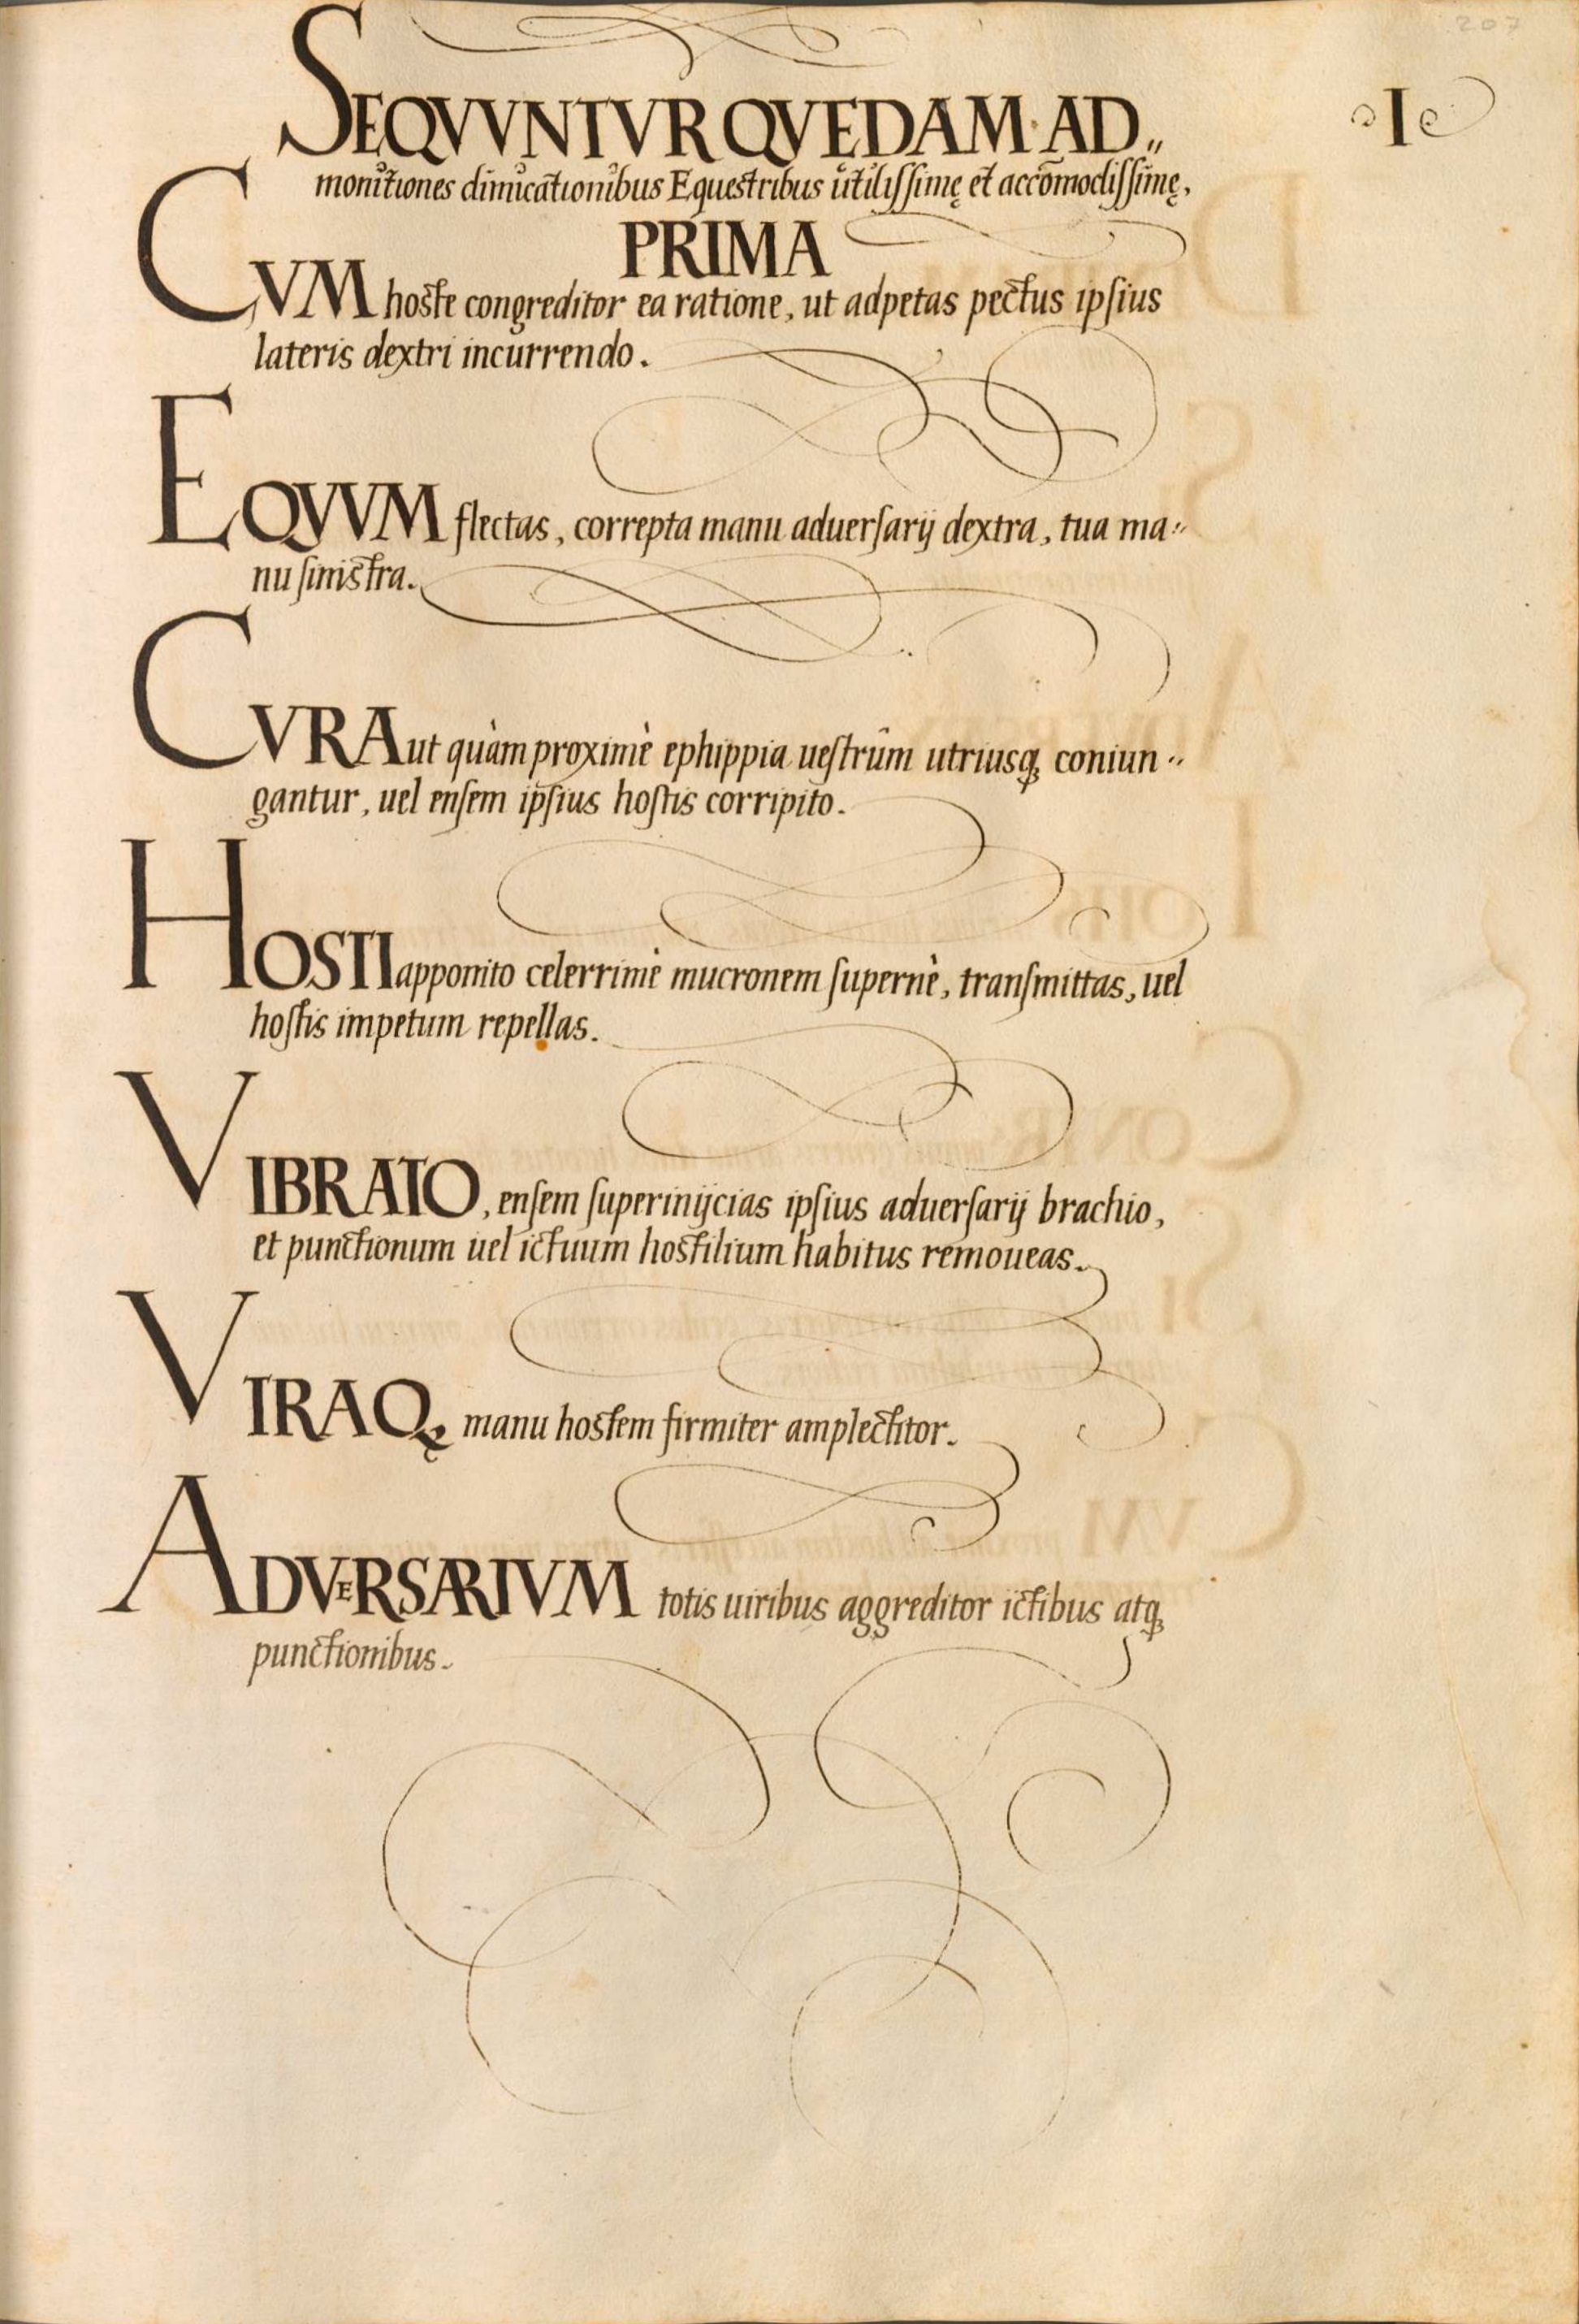 207
I
SEQVVNTVR QVEDAM AD„
monitiones dimicationibus Equestribus utilissimę et accōmodissimę,
PRIMA
CVM hoste congreditor ea ratione, ut adpetas pectus ipsius
lateris dextri incurrendo.
EQVVM flectas, correpta manu aduersarij dextra, tua ma„
nu sinistra.
CVRA ut quàm proximè ephippia uestrûm utriusq; coniun„
gantur, uel ensem ipsius hostis corripito.
HOSTI apponito celerrimè mucronem supernè, transmittas, uel
hostis impetum repellas.
VIBRATO, ensem superinijcias ipsius aduersarij brachio,
et punctionum uel ictuum hostilium habitus remoueas.
VIRAQ; manu hostem firmiter amplectitor.
ADVERSARIVM totis uiribus aggreditor ictibus atq;
punctionibus.